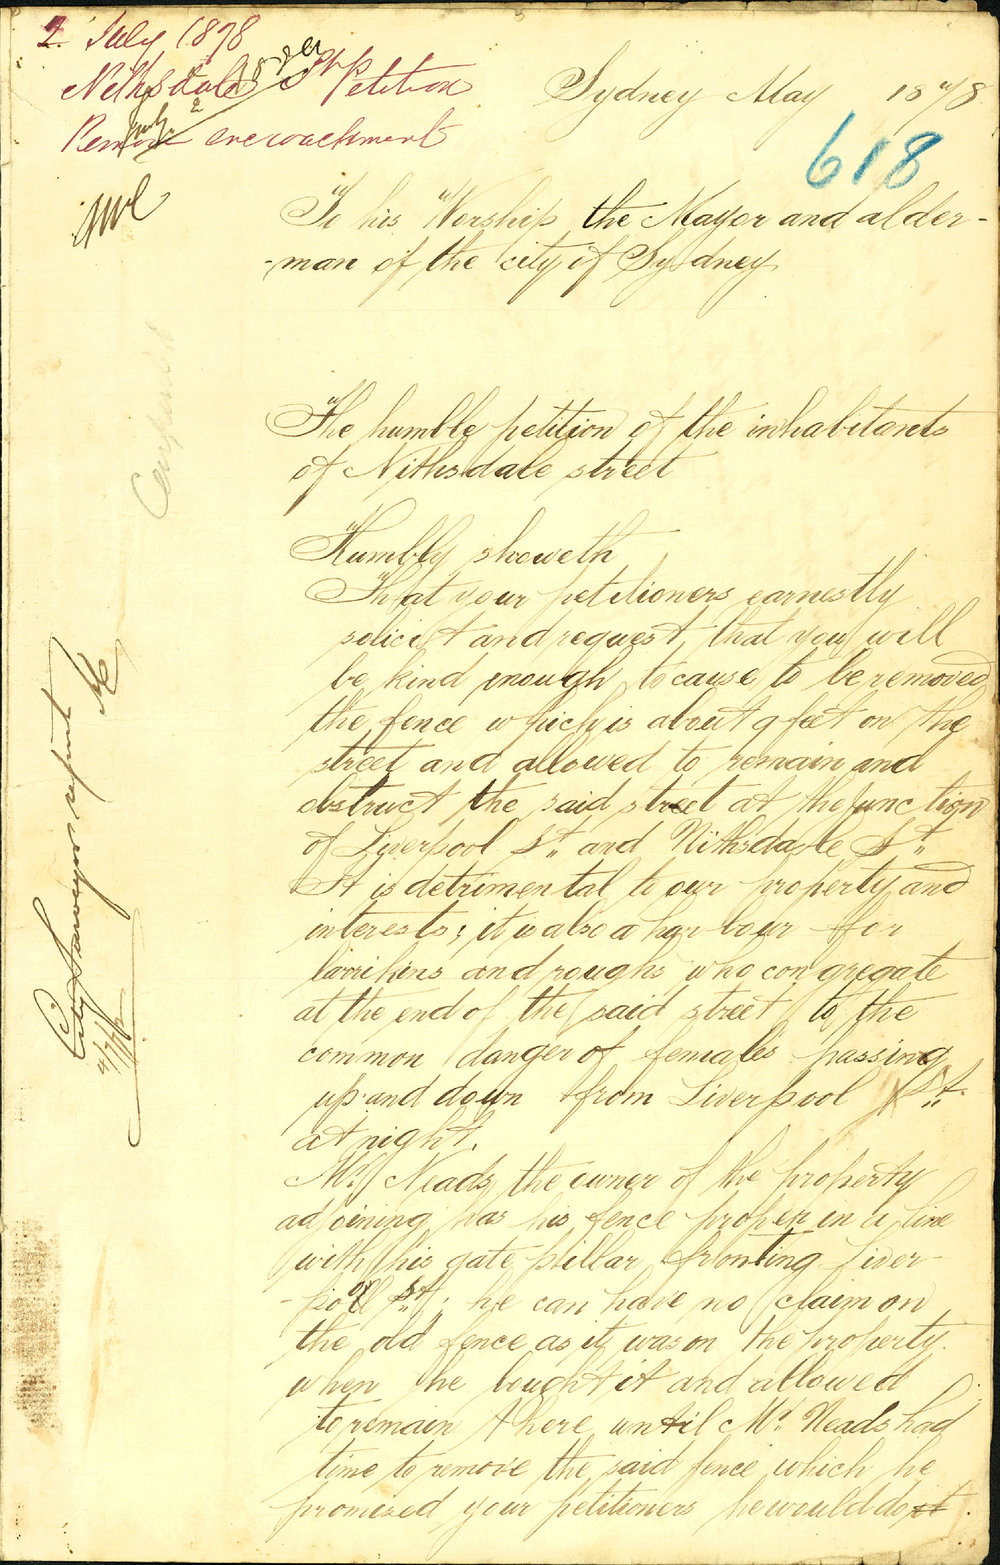 2 July 1878
Nithsdale St Petition
Remove encroachment
Sydney May 1878
618
To his Worship the Mayor and alder-
-man of the city of Sydney
The humble petition of the inhabitants
of Nithsdale street
Humbly sheweth
That your petitioners earnestly
solicit and request, that you will
be kind enough to cause to be removed
the fence which is about 9 feet on the
street and allowed to remain and
obstruct the said street at the junction
of Liverpool St. and Nithsdale St.
It is detrimental to our property and
interests; it is also a harbour for
larrikins and roughs who congregate
at the end of the said street to the
common danger of females passing
up and down from Liverpool St.
at night.
Mr. Neads, the owner of the property
adjoining has his fence proper in a line
with his gate pillar fronting Liver-
-pool St.; he can have no claim on
the old fence as it was on the property
when he bought it and allowed
to remain there until Mr. Neads had
time to remove the said fence which he
promised your petitioners he would do it
City Surveyor report
4/7/78